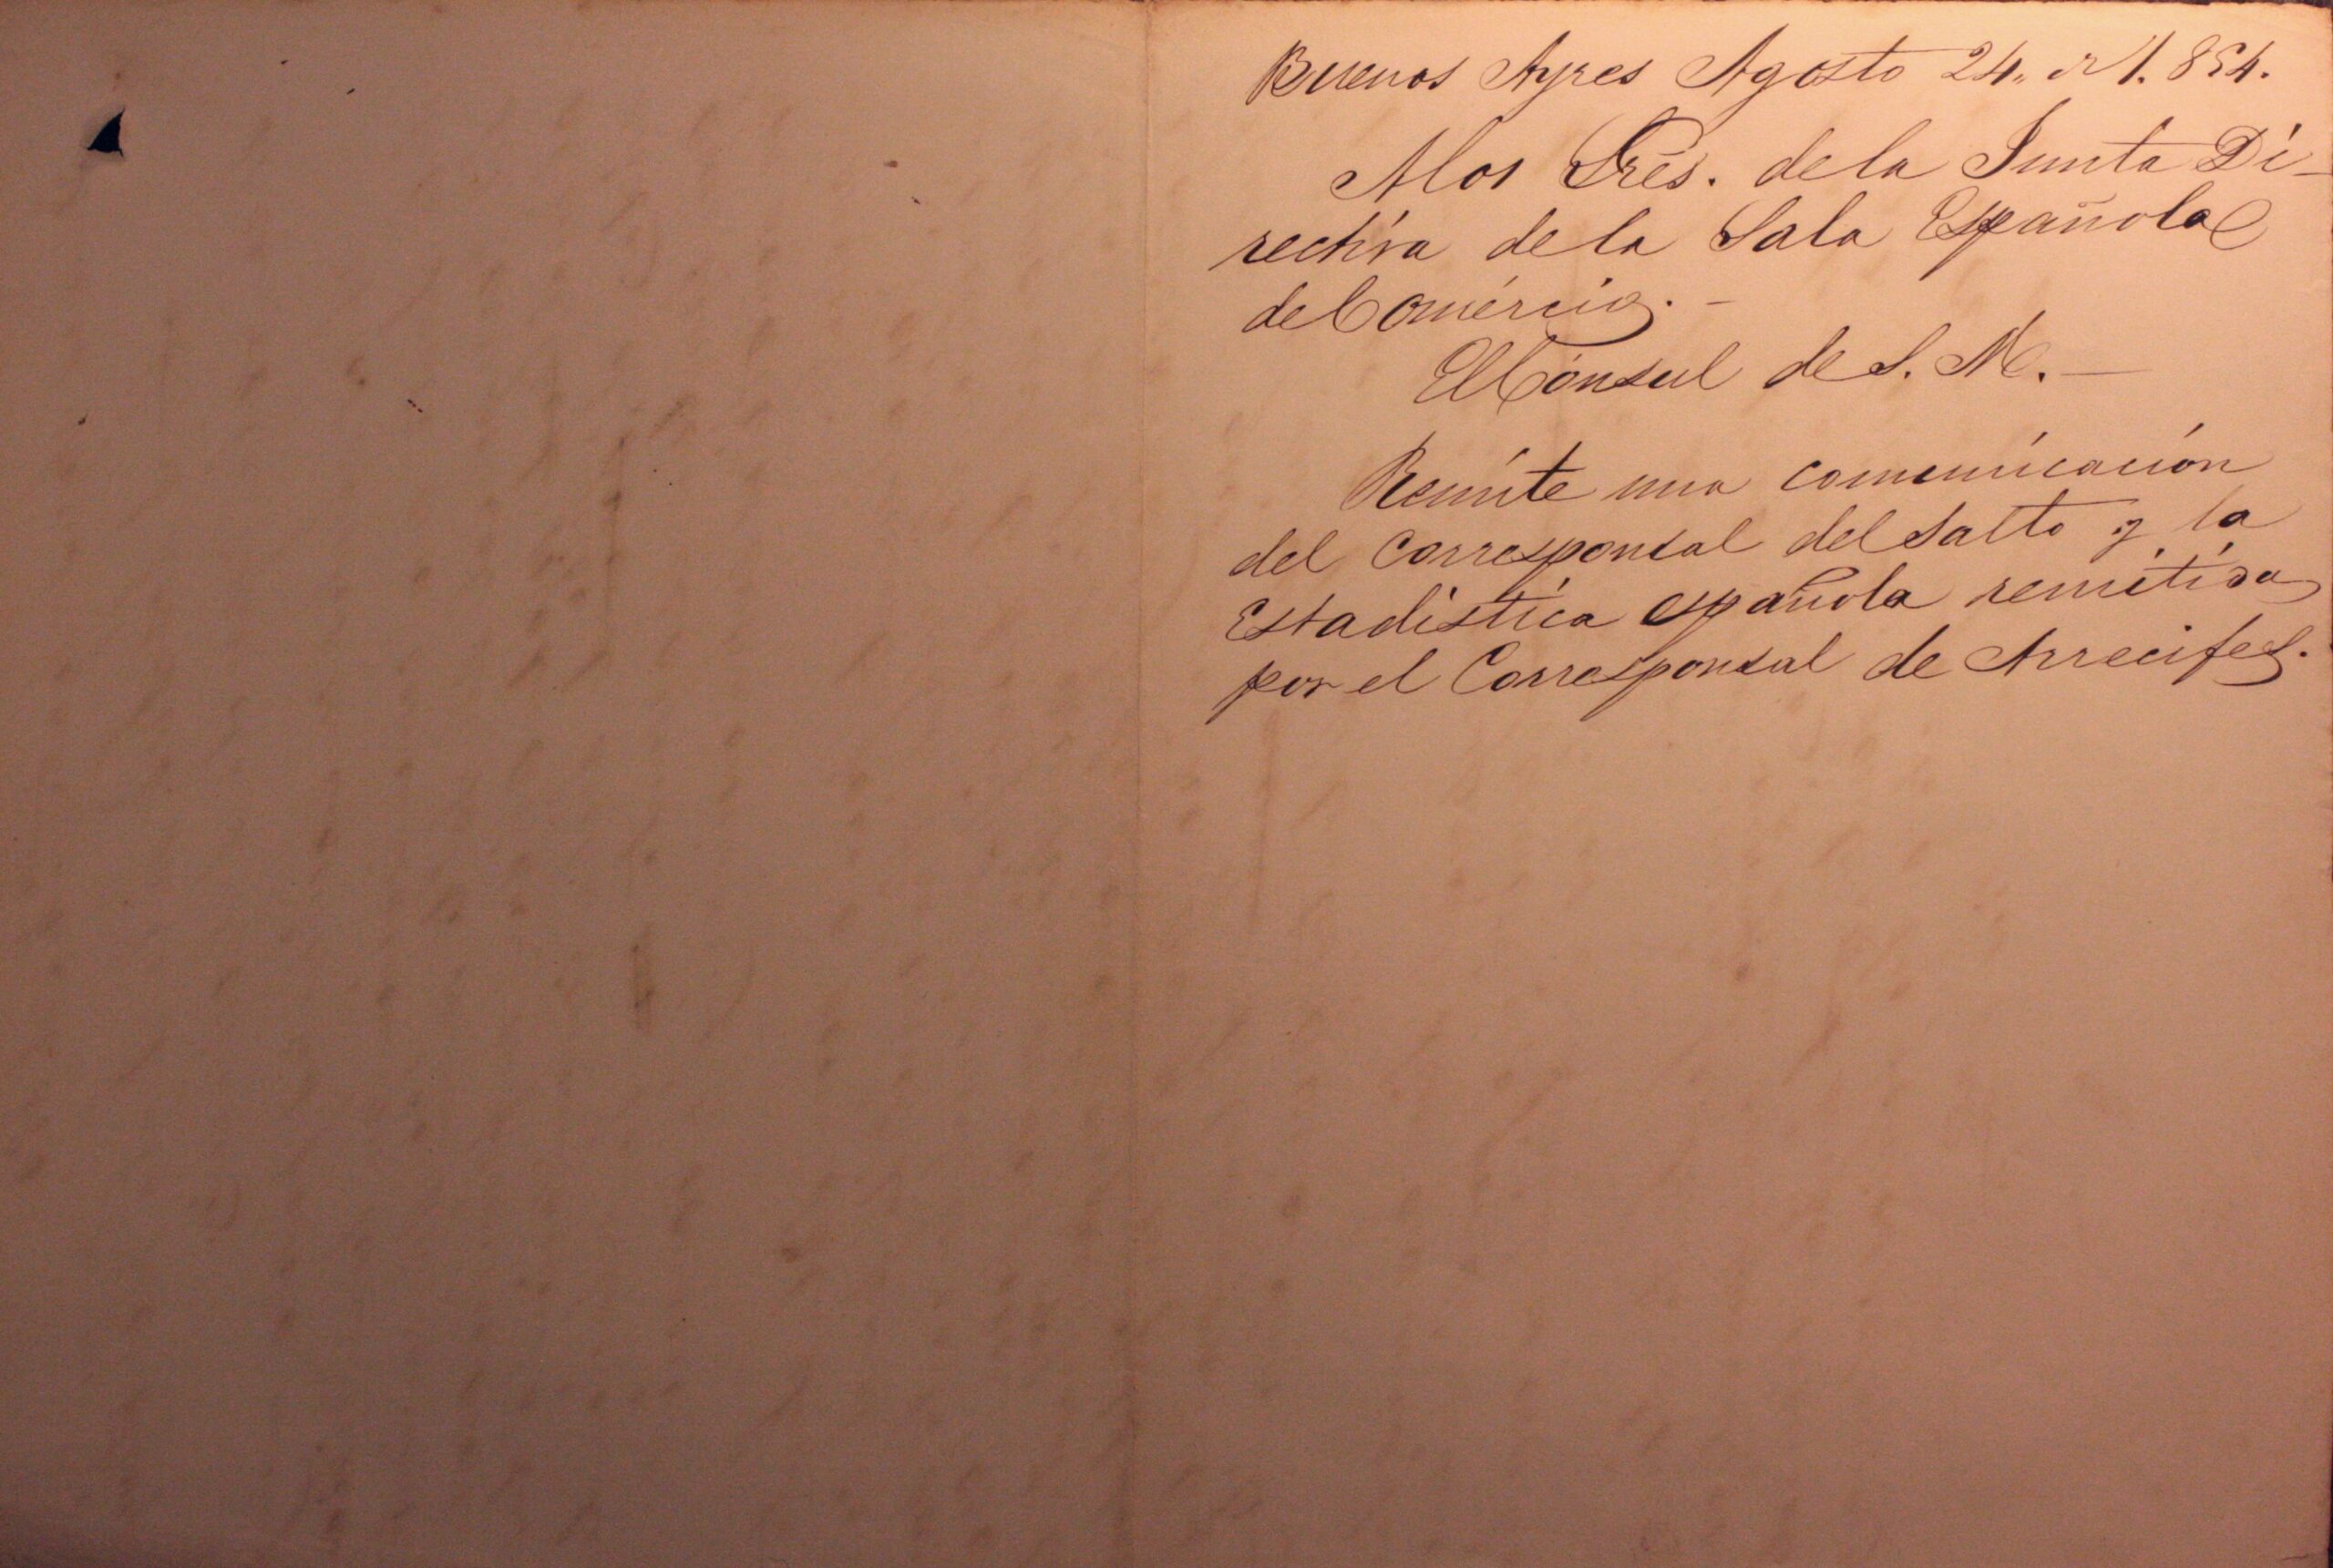 Buenos Ayres Agosto 24,, de 1.854.
Alos Sres. dela Junta Di-
rectiva de la Sala Española
de Comércio. -
El Cónsul de S. M. —
Remite una comunicación
del Corresponsal del Salto y la
Estadistica española remitida
por el Corresponsal de Arrecifes.